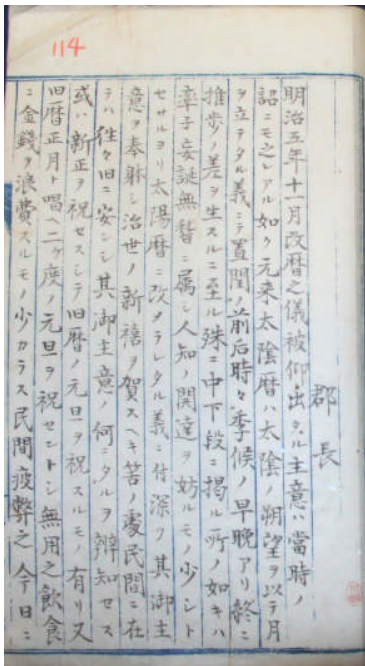 114
郡長
明治五年十一月改暦之儀被仰出タル主意ハ當時ノ
詔ニモ之レアル如ク元来太陰暦ハ太陰ノ朔望ヲ以テ月
ヲ立ヲタル義ニテ置閏ノ前后時々季候ノ早晩アリ終ニ
推歩ノ差ヲ生スルニ至ル殊ニ中下段ニ掲ル所ノ如キハ
率子妄誕無稽ニ属シ人知ノ開達ヲ妨ルモノ少シト
セサルヨリ太陽暦ニ改メラレタル義ニ付深ク其御主
意ヲ奉躰シ治世ノ新禧ヲ賀スヘキ筈ノ處民間ニ在
テハ徃々旧ニ安ンシ其御主意ノ何ニタルヲ辨知セス
或ハ新正ヲ祝セスシテ旧暦ノ元旦ヲ祝スルモノ有リ又
旧暦正月ト唱ヘ二ヶ度ノ元旦ヲ祝セントシ無用之飲食
ニ金錢ヲ浪費スルモノ少カラス民間疲弊之今日ニ